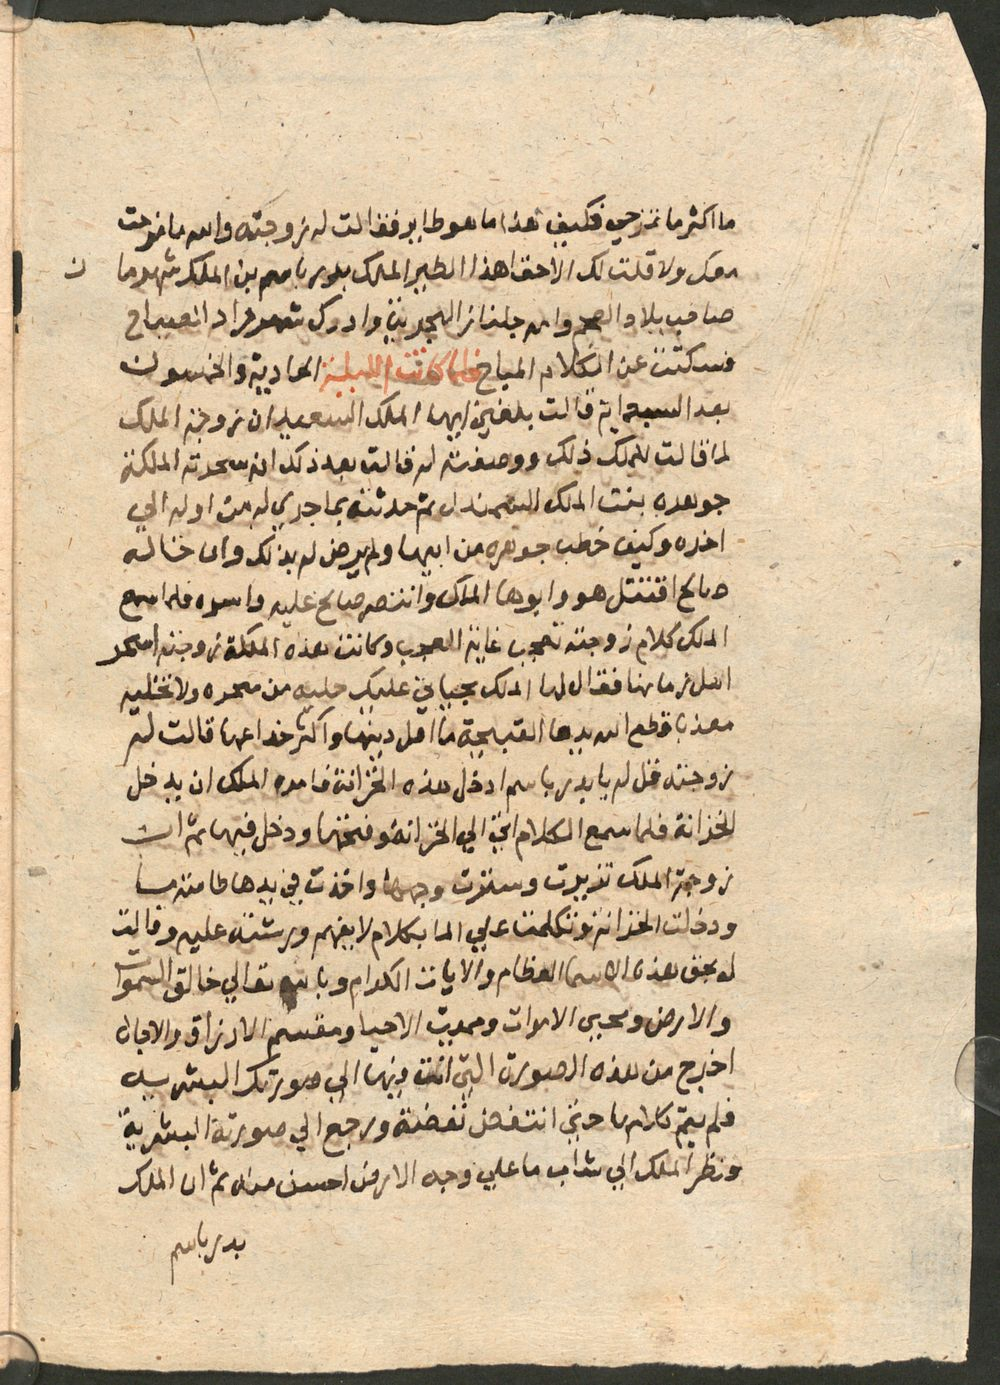 ما اكثر ما تمزحي فكيف هذا ما هو طاير فقالت له زوجته والله ما مزحت
معك ولا قلت لك الا حقا هذا الطير الملك بدر باسم بن الملك شهرمان
صاحب بلاد العجم وامه جلناز البحريه وادرك شهرزاد الصباح
فسكتت عن الكلام المباح فلما كانت الليلة الحادية والخمسون
بعد السبعماية قالت بلغني ايها الملك السعيد ان زوجة الملك
لما قالت للملك ذلك ووصفته له قالت بعد ذلك انه سحرته الملكة
جوهره بنت الملك السمندل ثم حدثته بما جري له من اوله الي
اخره وكيف خطب جوهره من ابيها ولم يرض له بذلك وان خاله
صالح اقتتل هو وابوها الملك وانتصر صالح عليه واسره فلما سمع
الملك كلام زوجته تعجب غاية العجب وكانت هذه الملكة زوجته اسحر
اهل زمانها فقال لها الملك بحياتي عليك حليه من سحره ولا تخليه
معذبا قطع الله يدها القبيحة ما اقل دينها واكثر خداعها قالت له
زوجته قل له يا بدر باسم ادخل هذه الخزانة فامره الملك ان يدخل
الخزانة فلما سمع الكلام اتي الي الخزانة وفتحها ودخل فيها ثم ان
زوجة الملك تزيرت وسترت وجهها واخذت في يدها طاسة ما
ودخلت الخزانة وتكلمت علي الما بكلام لا يفهم ورشته عليه وقالت
له بحق هذه الاسما العظام والايات الكرام وبالله تعالي خالق السموات
والارض ومحيي الاموات ومميت الاحيا ومقسم الارزاق والاجال
اخرج من هذه الصورة التي انت فيها الي صورتك البشريه
فلم يتم كلامها حتي انتفض نفضة ورجع الي صورته البشرية
ونظر الملك الي شاب ما علي وجه الارض احسن منه ثم ان الملك
بدر باسم